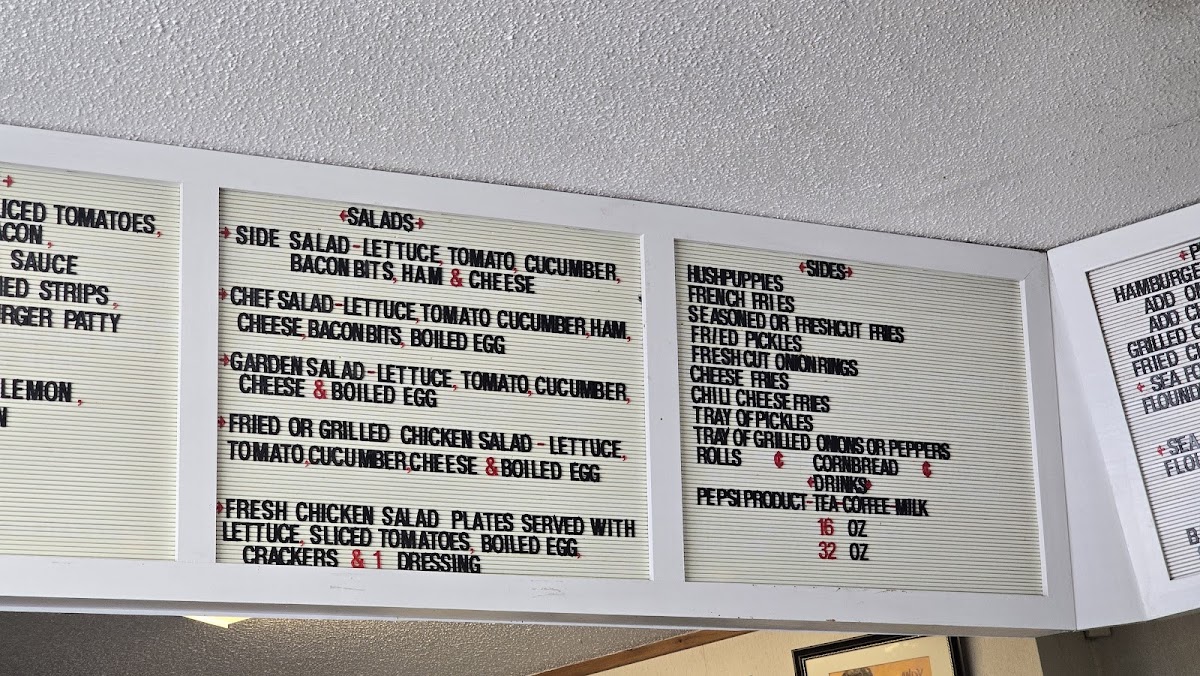 LICED TOMATOES,
ACON,
SAUCE
IED STRIPS,
RGER PATTY
LEMON,
N
SALADS
SIDE SALAD-LETTUCE, TOMATO, CUCUMBER,
BACON BITS, HAM & CHEESE
CHEF SALAD-LETTUCE, TOMATO CUCUMBER, HAM,
CHEESE, BACON BITS, BOILED EGG
GARDEN SALAD-LETTUCE, TOMATO, CUCUMBER,
CHEESE & BOILED EGG
FRIED OR GRILLED CHICKEN SALAD-LETTUCE,
TOMATO,CUCUMBER,CHEESE & BOILED EGG
FRESH CHICKEN SALAD PLATES SERVED WITH
LETTUCE, SLICED TOMATOES, BOILED EGG,
CRACKERS & 1 DRESSING
SIDES
HUSHPUPPIES
FRENCH FRIES
SEASONED OR FRESHCUT FRIES
FR/ED PICKLES
FRESH CUT ONION RINGS
CHEESE FRIES
CHILI CHEESE FRIES
TRAY OF PICKLES
TRAY OF GRILLED ONIONS OR PEPPERS
ROLLS ¢ CORNBREAD ¢
DRINKS
PEPSI PRODUCT-TEA-COFFEE-MILK
16 OZ
32 OZ
P
HAMBURGE
ADD
ADD C
GRILLED C
FRIED C
SEA FO
FLOUND
SEA
FLOU
B